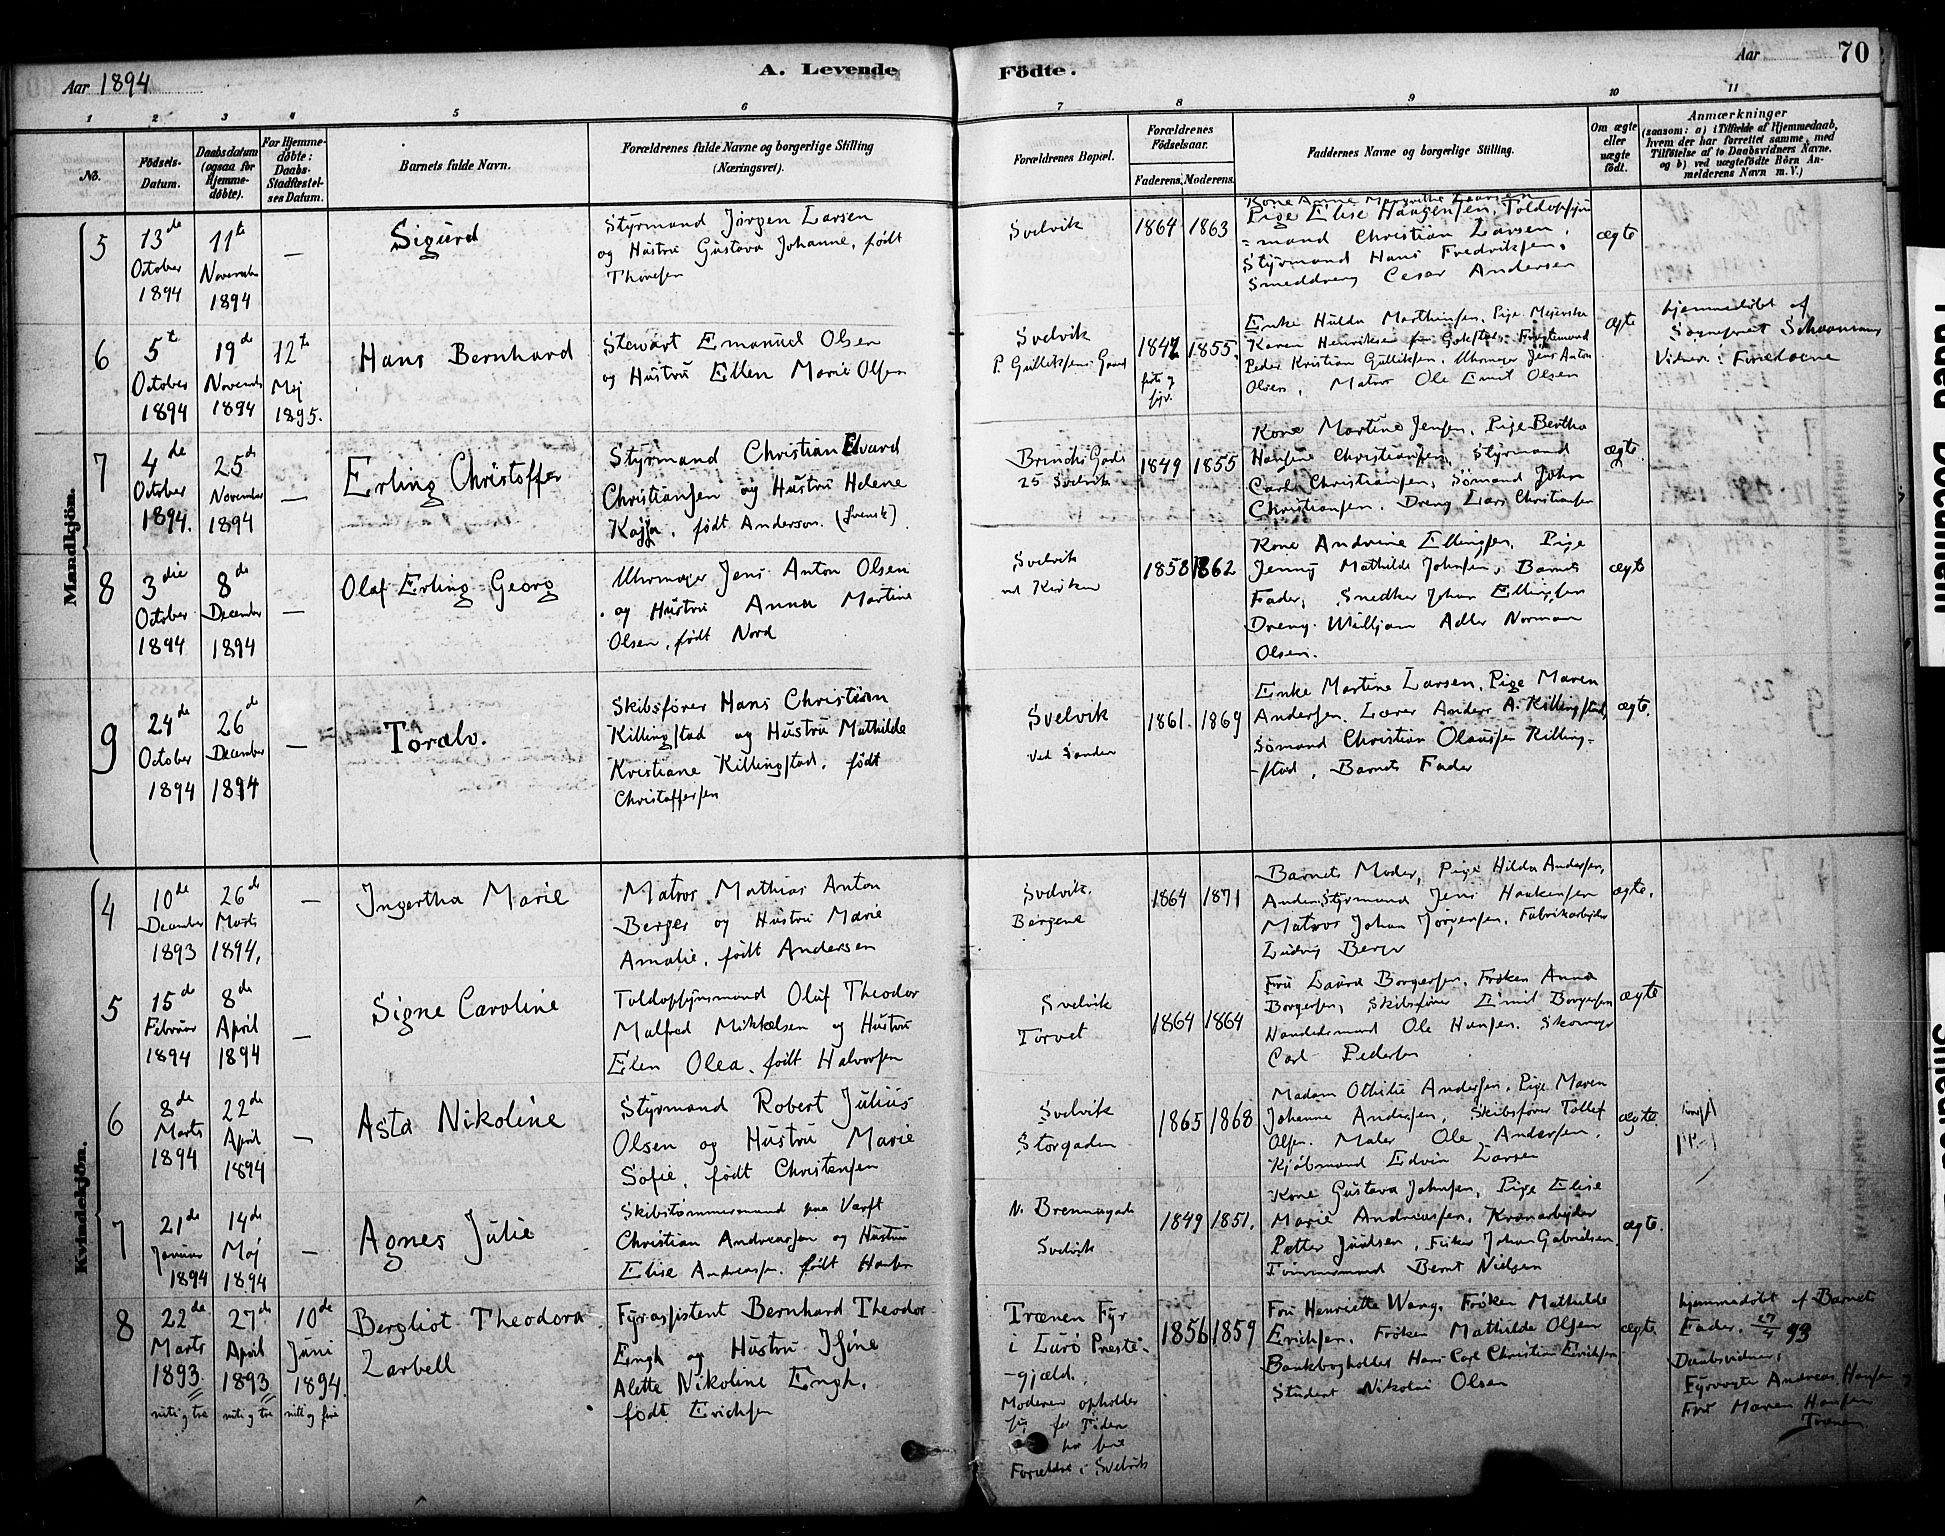 Aar 1894
A. Levende
Födte.
Aar
70
1 2 3 4 5 6 7 8 9 10 11
No.
Födsels-
Datum.
Daabsdatum
(ogsaa for
Hjemme-
døbte).
For Hjemme-
døbte:
Daabs-
Stadfæstel-
ses Datum.
Barnets fulde Navn.
Forældrenes fulde Navne og borgerlige Stilling
(Næringsvei).
Forældrenes Bopæl.
Forældrenes
Födselsaar.
Faderens. Moderens.
Faddernes Navne og borgerlige Stilling.
Om ægte
eller
uægte
født.
Anmærkninger
(saasom: a) i Tilfælde af Hjemmedaab,
hvem der har forrettet samme, med
Tilföielse af to Daabsvidners Navne,
og b) ved uægtefödte Börn An-
melderens Navn m. V.)
Mandkjön.
5
13de
October
1894
11te
November
1894
—
Sigurd
Styrmand Jørgen Larsen
og Hustru Gustava Johanne, født
Thoresen
Svelvik
1864 1863
Kone Anne Margrethe Larsen
Pige Elise Haagensen, Toldopsyns
=mand Christian Larsen,
Styrmand Hans Fredriksen,
Smeddreng Cesar Andersen
ægte
6
5te
October
1894
19de
November
1894
12te
Mej
1895.
Hans Bernhard
Stewart Emanuel Olsen
og Hustru Ellen Marie Olsen
Svelvik
P. Gulliksens Gaard
1847 1855.
Enke Hulda Marthinsen, Pige Mejerske
Karen Henriksen fra Gokstad,
Peder Kristian Gulliksen, Uhrmager Jens Anton
Olsen, Matros Ole Emil Olsen
ægte
hjemmedøbt af
Sognepræst Schaanning
Vidner: Forældrene
7
4de
October
1894.
25de
November
1894
—
Erling Christoffer
Styrmand Christian Edvard
Christiansen og Hustru Helene
Kajsa, født Anderson. (svensk)
Brinchs Gade
25 Svelvik
1849 1855
Kone Martine Jensen, Pige Bertha
Hansine Christiansen, Styrmand
Carl Christiansen, Sømand Johan
Christiansen. Dreng Lars Christiansen
ægte.
8
3die
October
1894
8de
December
1894
—
Olaf Erling Georg
Uhrmager Jens Anton Olsen
og Hustru Anna Martine
Olsen, født Nord
Svelvik
ved Kirken
1858 1862
Kone Andrine Ellingsen, Pige
Jenny Mathilde Johnsen, Barnets
Fader, Snedker Johan Ellingsen
Dreng Willijam Adler Norman
Olsen.
ægte
9
24de
October
1894
26de
December
1894
—
Toralv.
Skibsfører Hans Christian
Killingstad og Hustru Mathilde
Kristiane Killingstad, født
Christoffersen
Svelvik
ved Sanden
1861. 1869
Enke Martine Larsen, Pige Maren
Andersen. Lærer Anders A. Killingstad,
Sømand Christian Olaussen Killing-
-stad, Barnets Fader
ægte.
Kvindekjön.
4
10de
December
1893
26de
Marts
1894,
—
Ingertha Marie
Matros Mathias Anton
Berger og Hustru Marie
Amalie, født Andersen
Svelvik.
Bergene
1864 1871
Barnets Moder, Pige Hilda Andersen,
Anden Styrmand Jens Haakensen
Matros Johan Jørgensen, Fabrikarbejder
Ludvig Berger
ægte.
5
15de
Februar
1894
8de
April
1894
—
Signe Caroline
Toldopsynsmand Oluf Theodor
Malfred Mikkelsen og Hustru
Elen Olea, født Halvorsen
Svelvik
Torvet
1864 1864
Fru Laura Borgersen, Frøken Anna
Borgersen, Skibsfører Emil Borgersen
Handelsmand Ole Hansen. Skomager
Carl Pedersen
ægte
6
8de
Marts
1894
22de
April
1894
—
Asta Nikoline
Styrmand Robert Julius
Olsen og Hustru Marie
Sofie, født Christensen
Svelvik
Storgaden
1865 1868
Madam Othilie Andersen, Pige Maren
Johanne Andersen, Skibsfører Tollef
Olsen. Maler Ole Andersen,
Kjøbmand Edvin Larsen
ægte.
7
21de
Januar
1894
14de
Maj
1894
—
Agnes Julie
Skibstømmermand paa Værft
Christian Andreassen og Hustru
Elise Andreassen. født Hansen
N. Brennagade
Svelvik
1849 1851.
Kone Gustava Johnsen, Pige Elise
Marie Andreassen, Kranarbejder
Petter Juulsen, Fisker Johan Gabrielsen
Tømmermand Bernt Nielsen
ægte.
8
22de
Marts
1893.
nitti og tre
27de
April
1893
nitti og tre
10de
Juni
1894.
nitti og fire
Bergliot Theodora
Zarbell
Fyrassistent Bernhard Theodor
Engh og Hustru Isine
Alette Nikoline Engh,
født Erichsen
Trænen Fyr
i Lurö Præste-
-gjæld.
Moderen opholder
sig for Tiden
hos sine
Forældre i Svelvik
1856 1859
Fru Henriette Wang, Frøken Mathilde
Erichsen, Frøken Mathilde Olsen
Bankbogholder Hans Carl Christian Erichsen
Student Nikolai Olsen
ægte.
hjemmedøbt af Barnets
Fader. 27/4 93
Daabsvidner:
Fyrvogter Andreas Hansen og
Fru Maren Hansen
Trænen